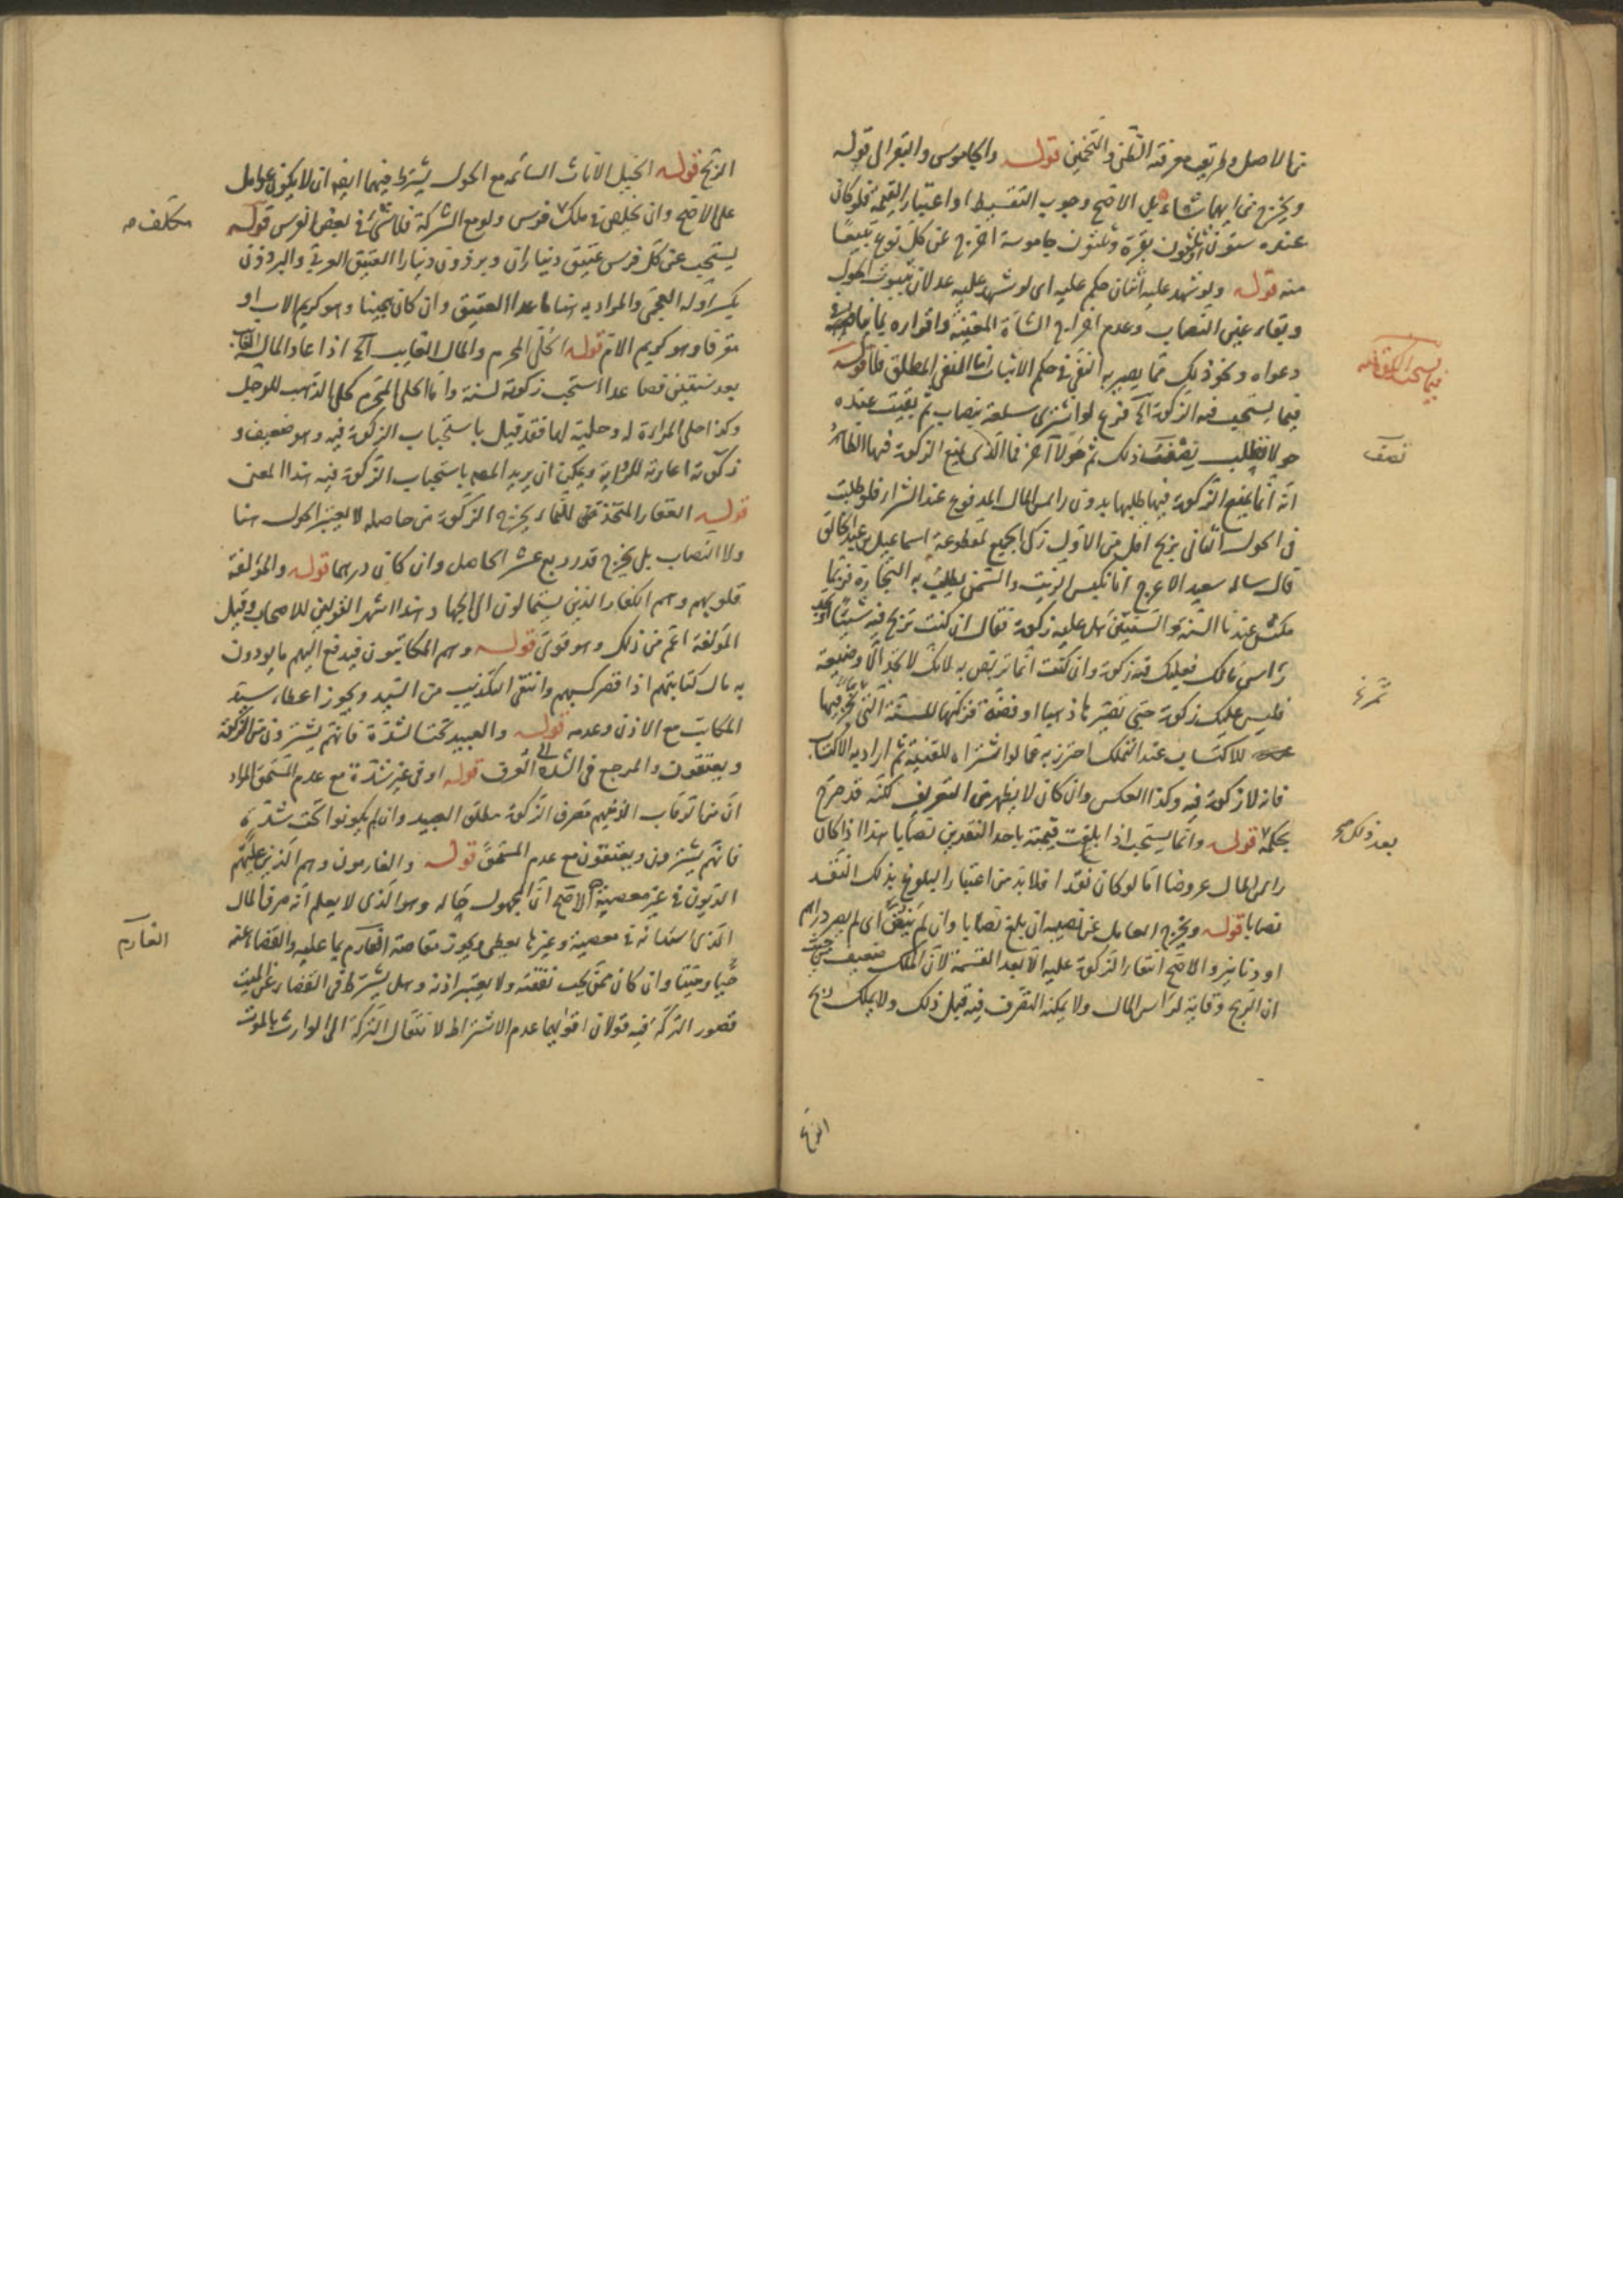 من الاصل وطريق معرفته الظن والتخمين قوله والجاموس والبقر الى قوله
ويخرج من ايهما شاء بل الاصح وجوب التقسيط او اعتبار القيمة فلو كان
عنده ستون ثلثون بقرة وثلثون جاموسة اخرج عن كل نوع تبيعا
منه قوله ولو شهد عليه اثنان حكم عليه اى لو شهد عليه عدلان بثبوت الحول
وبقاء عين النصاب وعدم اخراج الشاة المعينة واقراره بما
دعواه ونحو ذلك مما يصير به النفى فى حكم الاثبات اما النفى المطلق فلا قوله
فيما يستحب فيه الزكوة الخ فرع لو اشترى سلعة بنصاب ثم بقيت عنده
حولا فطلب بنصف ذلك ثم حولا آخر فما الذى يمنع الزكوة فيها الظاهر
انه انما يمنع الزكوة فيها طلبها بدون راس المال المدفوع عند الشراء فلو طلبت
فى الحول الثانى بربح اقل من الاول زكى الجميع لمقطوعة اسماعيل بن عبد الخالق
قال ساله سعيد الاعرج انا نكبس الزيت والسمن نطلب به التجارة فربما
مكث عندنا السنة والسنتين هل عليه زكوة فقال ان كنت تربح فيه شيئا او تجد
راس مالك فعليك فيه زكوة وان كنت انما تربص به لانك لا تجد الا وضيعة
فليس عليك زكوة حتى تصير ذهبا او فضة فزكها للسنة التى تخرج فيها
للاكتساب عند التملك احترز به عما لو اشتراه للقنية ثم اراد به الاكتساب
فانه لا زكوة فيه وكذا العكس وان كان لا يظهر من التعريف لكنه قد صرح
بحكمه قوله وانما يستحب اذا بلغت قيمته باحد النقدين نصابا هذا اذا كان
راس المال عروضا اما لو كان نقدا فلا بد من اعتبار البلوغ بذلك النقد
نصابا قوله ويخرج العامل عن نصيبه ان بلغ نصابا وان لم ينض اى لم يصر دراهم
او دنانير والاصح انتفاء الزكوة عليه الا بعد القسمة لان الملك ضعيف حيث
ان الربح وقاية لراس المال ولا يمكنه التصرف فيه قبل ذلك ولا يملك ربح
فيما يستحب الزكوة فيه
نصف
بعد ذلك صح
الربح قوله الخيل الاناث السائمة مع الحول يشترط فيهما ايضا ان لا يكون عوامل
على الاصح وان يخلص فى ملك فرس ولو مع الشركة فلا شىء فى بعض الفرس قوله
يستحب عن كل فرس عتيق ديناران وبرذون دينارا العتيق العربى والبرذون
بكسر اوله العجمى والمراد به هنا ما عدا العتيق وان كان هجينا وهو كريم الاب او
مقرفا وهو كريم الام قوله الحلى المحرم والمال الغايب الخ اذا عاد المال الغايب
بعد سنتين فصاعدا استحب زكوته لسنة واما الحلى المحرم كحلى الذهب للرجل
وكذا حلى المراة له وحليته لها فقد قيل باستحباب الزكوة فيه وهو ضعيف و
زكوته اعارته للرواية ويمكن ان يريد المص باستحباب الزكوة فيه هذا المعنى
قوله العقار المتخذ للنماء يخرج الزكوة من حاصله لا يعتبر الحول هنا
ولا النصاب بل يخرج قدر ربع عشر الحاصل وان كان درهما قوله والمؤلفة
قلوبهم وهم الكفار الذين يستمالون الى الجهاد هذا اشهر القولين للاصحاب وقيل
المؤلفة اعم من ذلك وهو قوى قوله وهم المكاتبون فيدفع اليهم ما يودون
به مال كتابتهم اذا قصر كسبهم وانتفى التكذيب من السيد ويجوز اعطاء سيد
المكاتب مع الاذن وعدمه قوله والعبيد تحت الشدة فانهم يشترون من الزكوة
ويعتقون والمرجع فى الشدة الى العرف قوله او فى غير شدة مع عدم المستحق المراد
ان من الرقاب الذين هم مصرف الزكوة مطلق العبيد وان لم يكونوا تحت شدة
فانهم يشترون ويعتقون مع عدم المستحق قوله والغارمون وهم الذين عليهم
الديون فى غير معصية الاصح ان المجهول حاله وهو الذى لا يعلم انه صرف المال
الذى استدانه فى معصية وغيرها يعطى ويجوز مقاصة الغارم بما عليه والقضاء عنه
حيا وميتا وان كان ممن يجب نفقته ولا يعتبر اذنه وهل يشترط فى القضاء عن الميت
قصور التركة فيه قولان اقواهما عدم الاشتراط لانتقال التركة الى الوارث بالموت
مكلف صح
الغارم